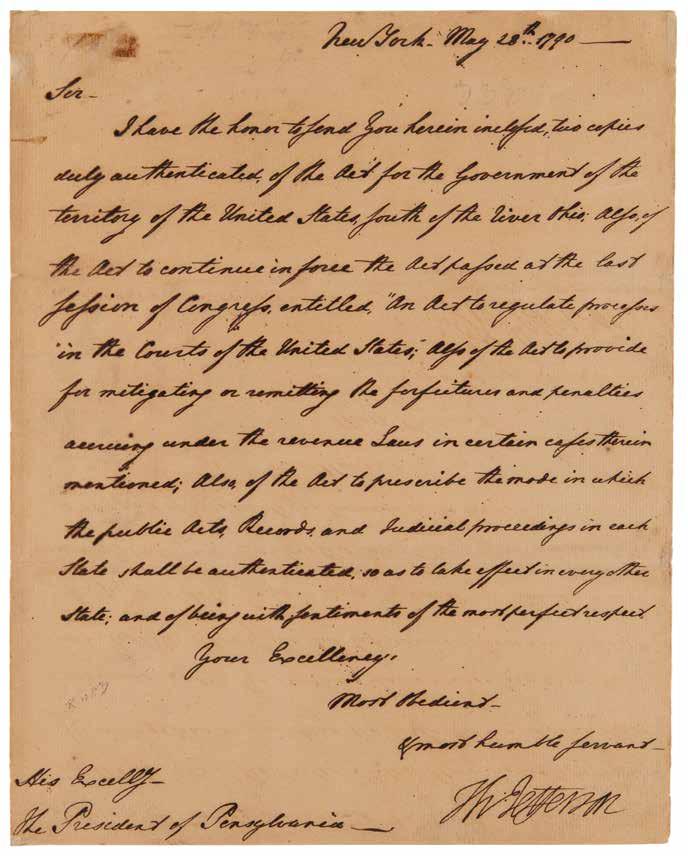 New York. May 28th. 1790
Sir
I have the honor to send You herein inclosed, two copies
duly authenticated, of the Act for the Government of the
territory of the United States, south of the river Ohio; Also, of
the Act to continue in force the Act passed at the last
session of Congress, entitled, "An Act to regulate processes
"in the Courts of the United States"; Also of the Act to provide
for mitigating or remitting the forfeitures and penalties
accruing under the revenue Laws in certain cases therein
mentioned; Also, of the Act to prescribe the mode in which
the public Acts, Records, and Judicial proceedings in each
State shall be authenticated, so as to take effect in every other
State; and of being with sentiments of the most perfect respect
Your Excellency's
Most Obedient
& most humble servant
Th: Jefferson
His Excelly
The President of Pensylvania